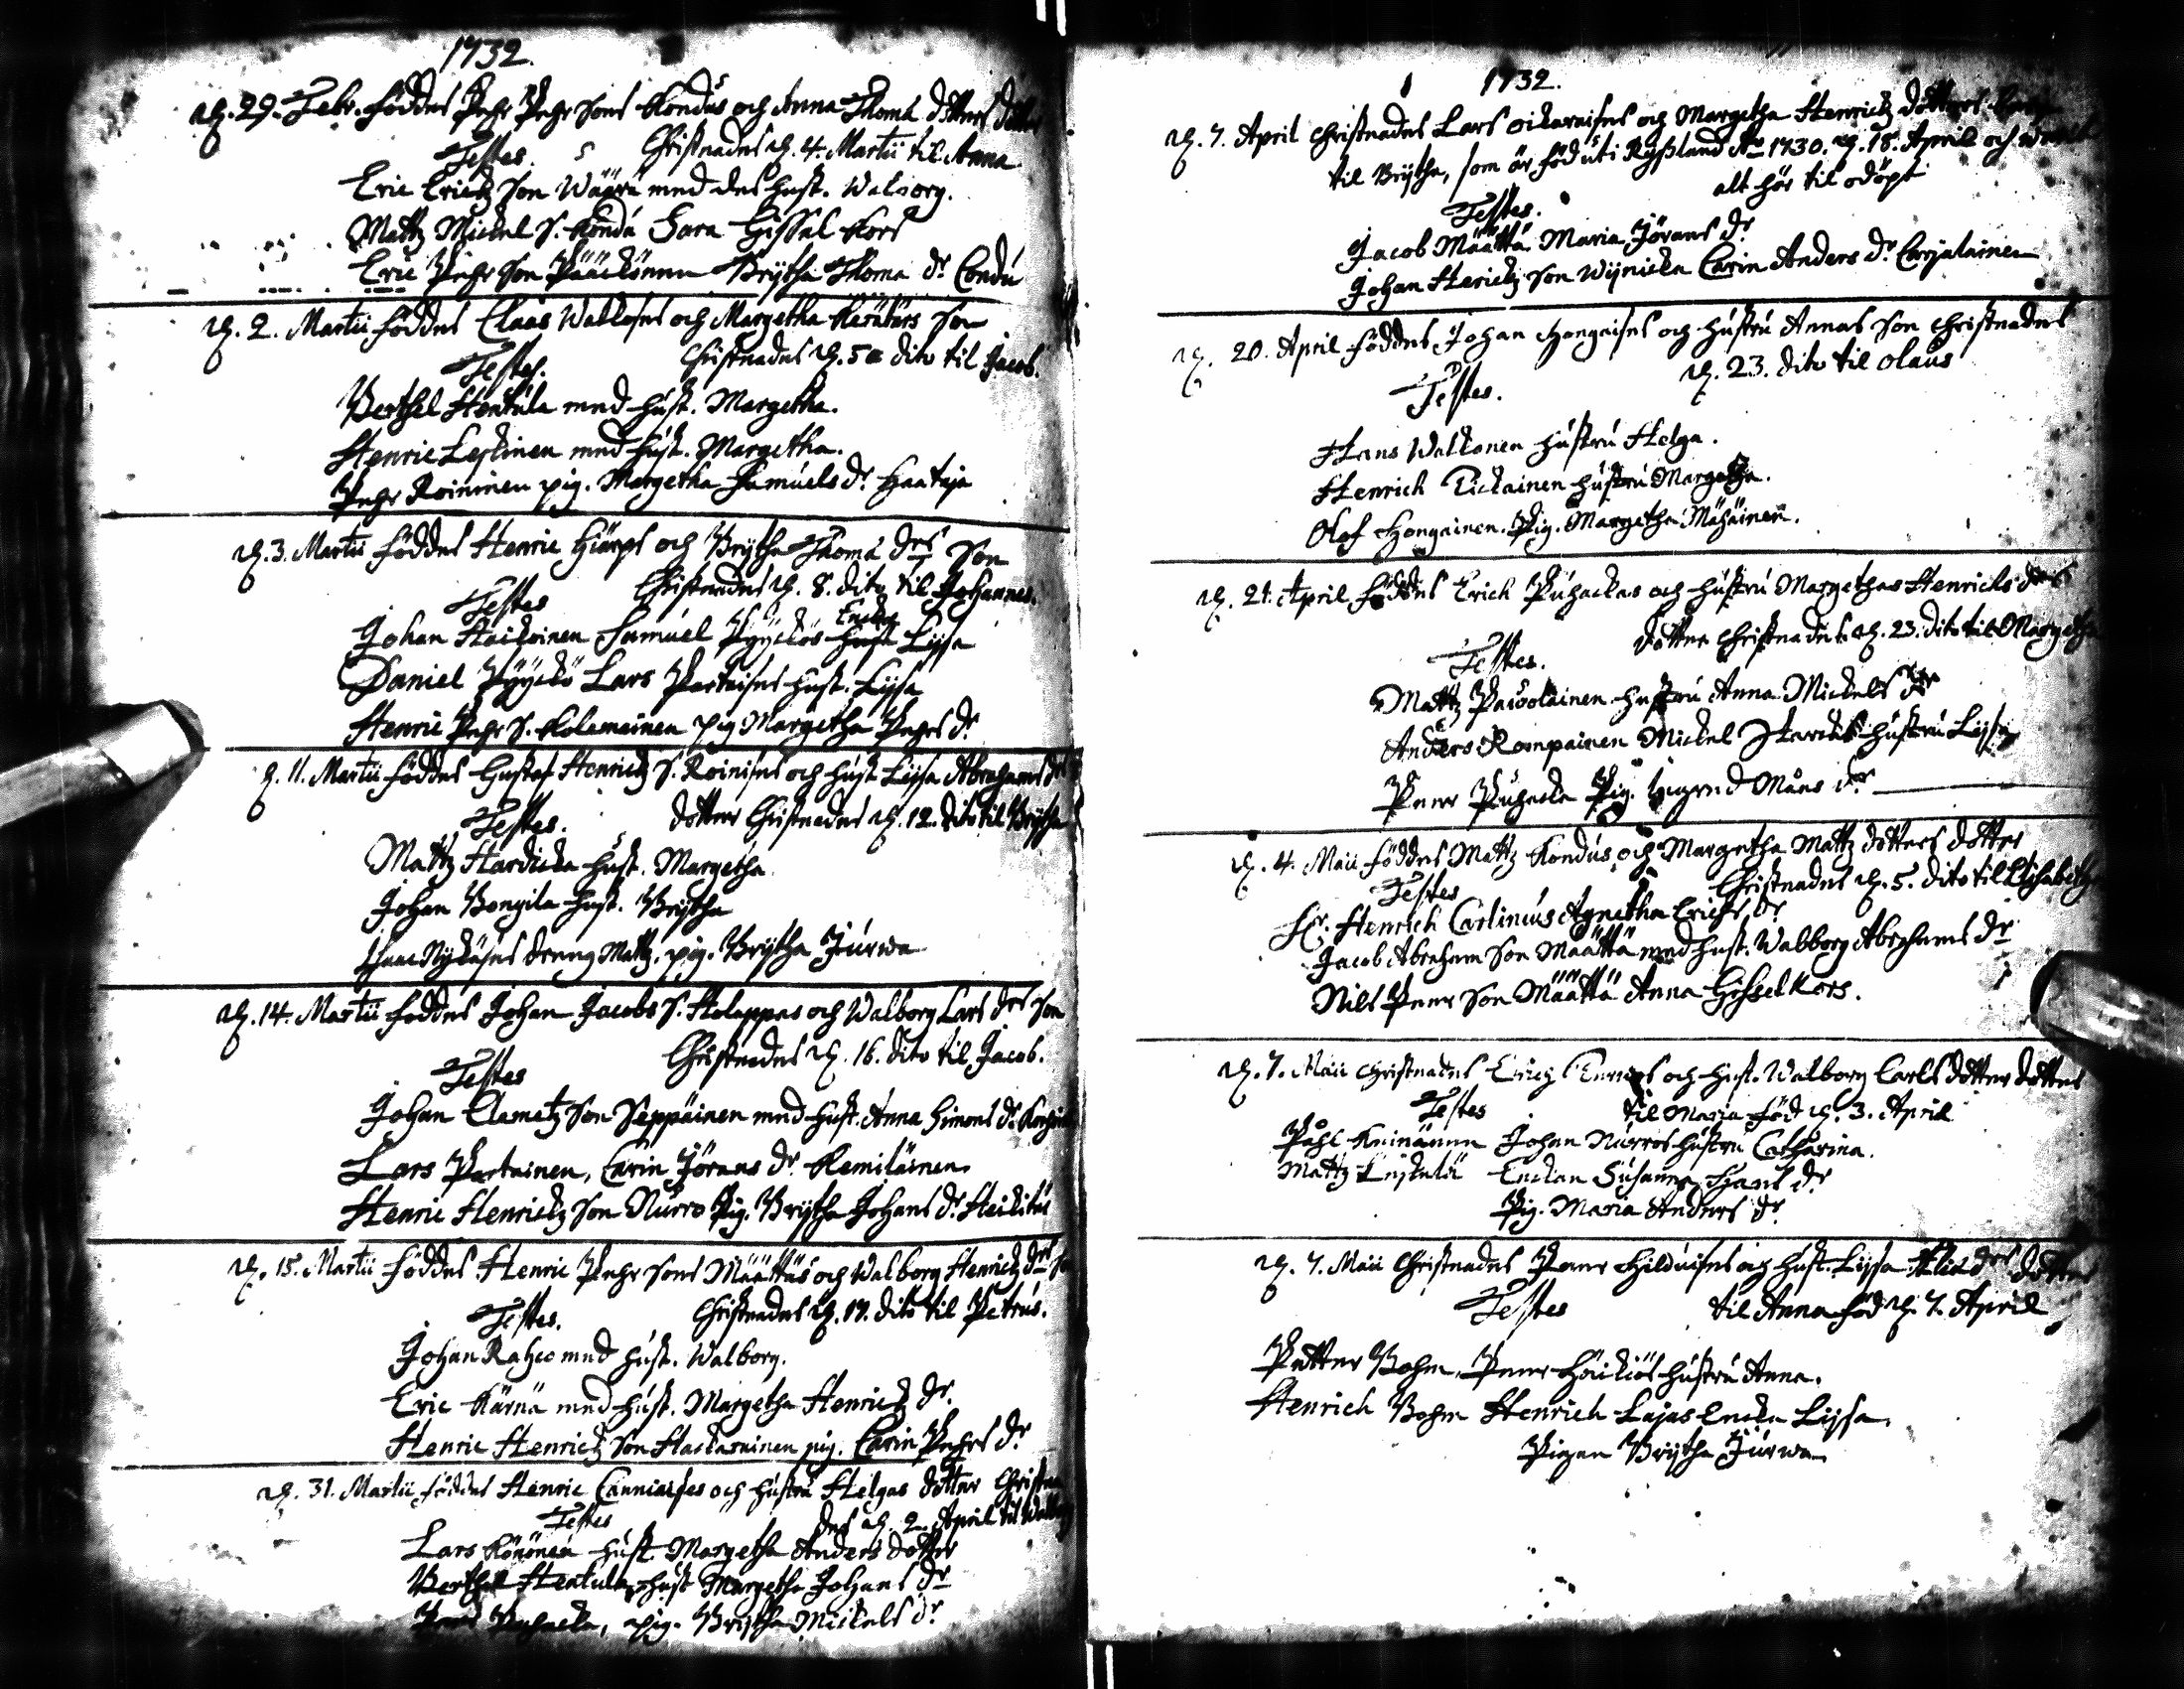 1732.
d. 29. Febr. föddes Pehr Pehr Sons Kondus och Anna Thomæ dotters dotter
Testes. Christnades d. 4. Martii til Anna
Eric Erichz Son Wäärä med des hust. Walborg.
Mattz Mickel S. Kondu Sara Gissel Kors
Eric Pehr Son Pääckönen Brijtha Thomæ dr. Condu
d. 2. Martii föddes Claas Walkoses och Margetha Son
Testes. Christnades d. 5 dito til Jacob.
Berthel Hentula med hust. Margetha.
Henric Leskinen med hust. Margetha.
Pehr Roininen pig. Margetha Samuels dr. Haataja
d. 3. Martii föddes Henric Hiärps och Brijtha Thomæ drs Son
Testes Christnades d. 8. dito til Johannes.
Johan Heickinen Samuel Pyyckös Enckia Lijsa
Daniel Pyyckö Lars Partaises hust. Lijsa
Henric Pehr S. Kolemainen pig Margetha Pehrs dr.
d. 11. Martii föddes Gustaf Henrichz S. Roinises och hust Lijsa Abrahams drs
Testes. dotter Christnades d. 12. dito til Brijtha
Mattz Hardicka hust. Margetha.
Johan Bongila hust. Brijtha
Nykäses dreng Mattz. pig. Brijtha Jurwa
d. 14. Martii föddes Johan Jacobs S. Holappas och Walborg Lars drs Son
Testes Christnades d. 16. dito til Jacob.
Johan Clemetz Son Seppäinen med hust. Anna Simons dr.
Lars Partainen, Carin Jörans dr. Kemiläinen
Henric Henrichz Son Nurro Pig. Brijtha Johans dr.
d. 15. Martii föddes Henric Pehr Sons Määttäs och Walborg Henrichz drs
Testes. Christnades d. 17. dito til Petrus.
Johan Rahco med hust. Walborg.
Eric Kärnä med hust. Margetha Henrichz dr.
Henric Henrichz Son Hackarainen pig. Carin Pehrs dr.
d. 31. Martii föddes Henric Canniaises och hustru Helgas dotter Christna
Testes des d. 2. April til Walborg
Lars Könönen hust Margetha Anders dotter
Berthel Hentula hust Margetha Johans dr
Puhacka, pig. Brijtha Mickels dr.
1732.
d. 7. April Christnades Lars Oikaraises och Margetha Henrichz dotters
til Brijtha, som är född uti Ryssland Ao 1730. d. 18. April och
alt här til odöpt
Testes.
Jacob Määttä Maria Jörans dr
Johan Henrichz Son Wijnicka Carin Anders dr. Carjalainen
d. 20. April föddes Johan Hongaises och hustru Annas Son Christnades
Testes. d. 23. dito til Olaus
Hans Walkonen hustru Helga.
Henrich Tickainen hustru Margetha.
Olof Hongainen. Pig. Margetha Mähäinen.
d. 21. April föddes Erich Puhackas och hustru Margethas Henrichs drs
Testes. dotter Christnades d. 23. dito til Margetha
Mattz Pawolainen hustru Anna Mickels dr
Anders Rompainen Mickel hustru Lijsa
Peer Puhacka Pig. Måns dr
d. 4. Maii föddes Mattz Kondus och Margetha Mattz dotters dotter
Testes Christnades d. 5. dito til Elisabeth
Hr. Henrich Carlinius Agnetha Erichs dr
Jacob Abraham Son Määttä med hust. Walborg Abrahams dr
Nils Peer Son Määttä Anna Gisselkors.
d. 7. Maii Christnades Erich och hust. Walborg Carls dotter dotter
Testes til Maria född d. 3. April
Påhl Keinänen Johan Nurros hustru Catharina.
Mattz Enckan Susanna Hans dr
Pig. Maria Anders dr.
d. 7. Maii Christnades Peer Hilduises och hust. Lijsa drs dotter
Testes til Anna född d. 7. April
Petter Bohm Peer Höickiös hustru Anna.
Henrich Bohm Henrich Lajas Encka Lijsa
Pigan Brijtha Jurwa